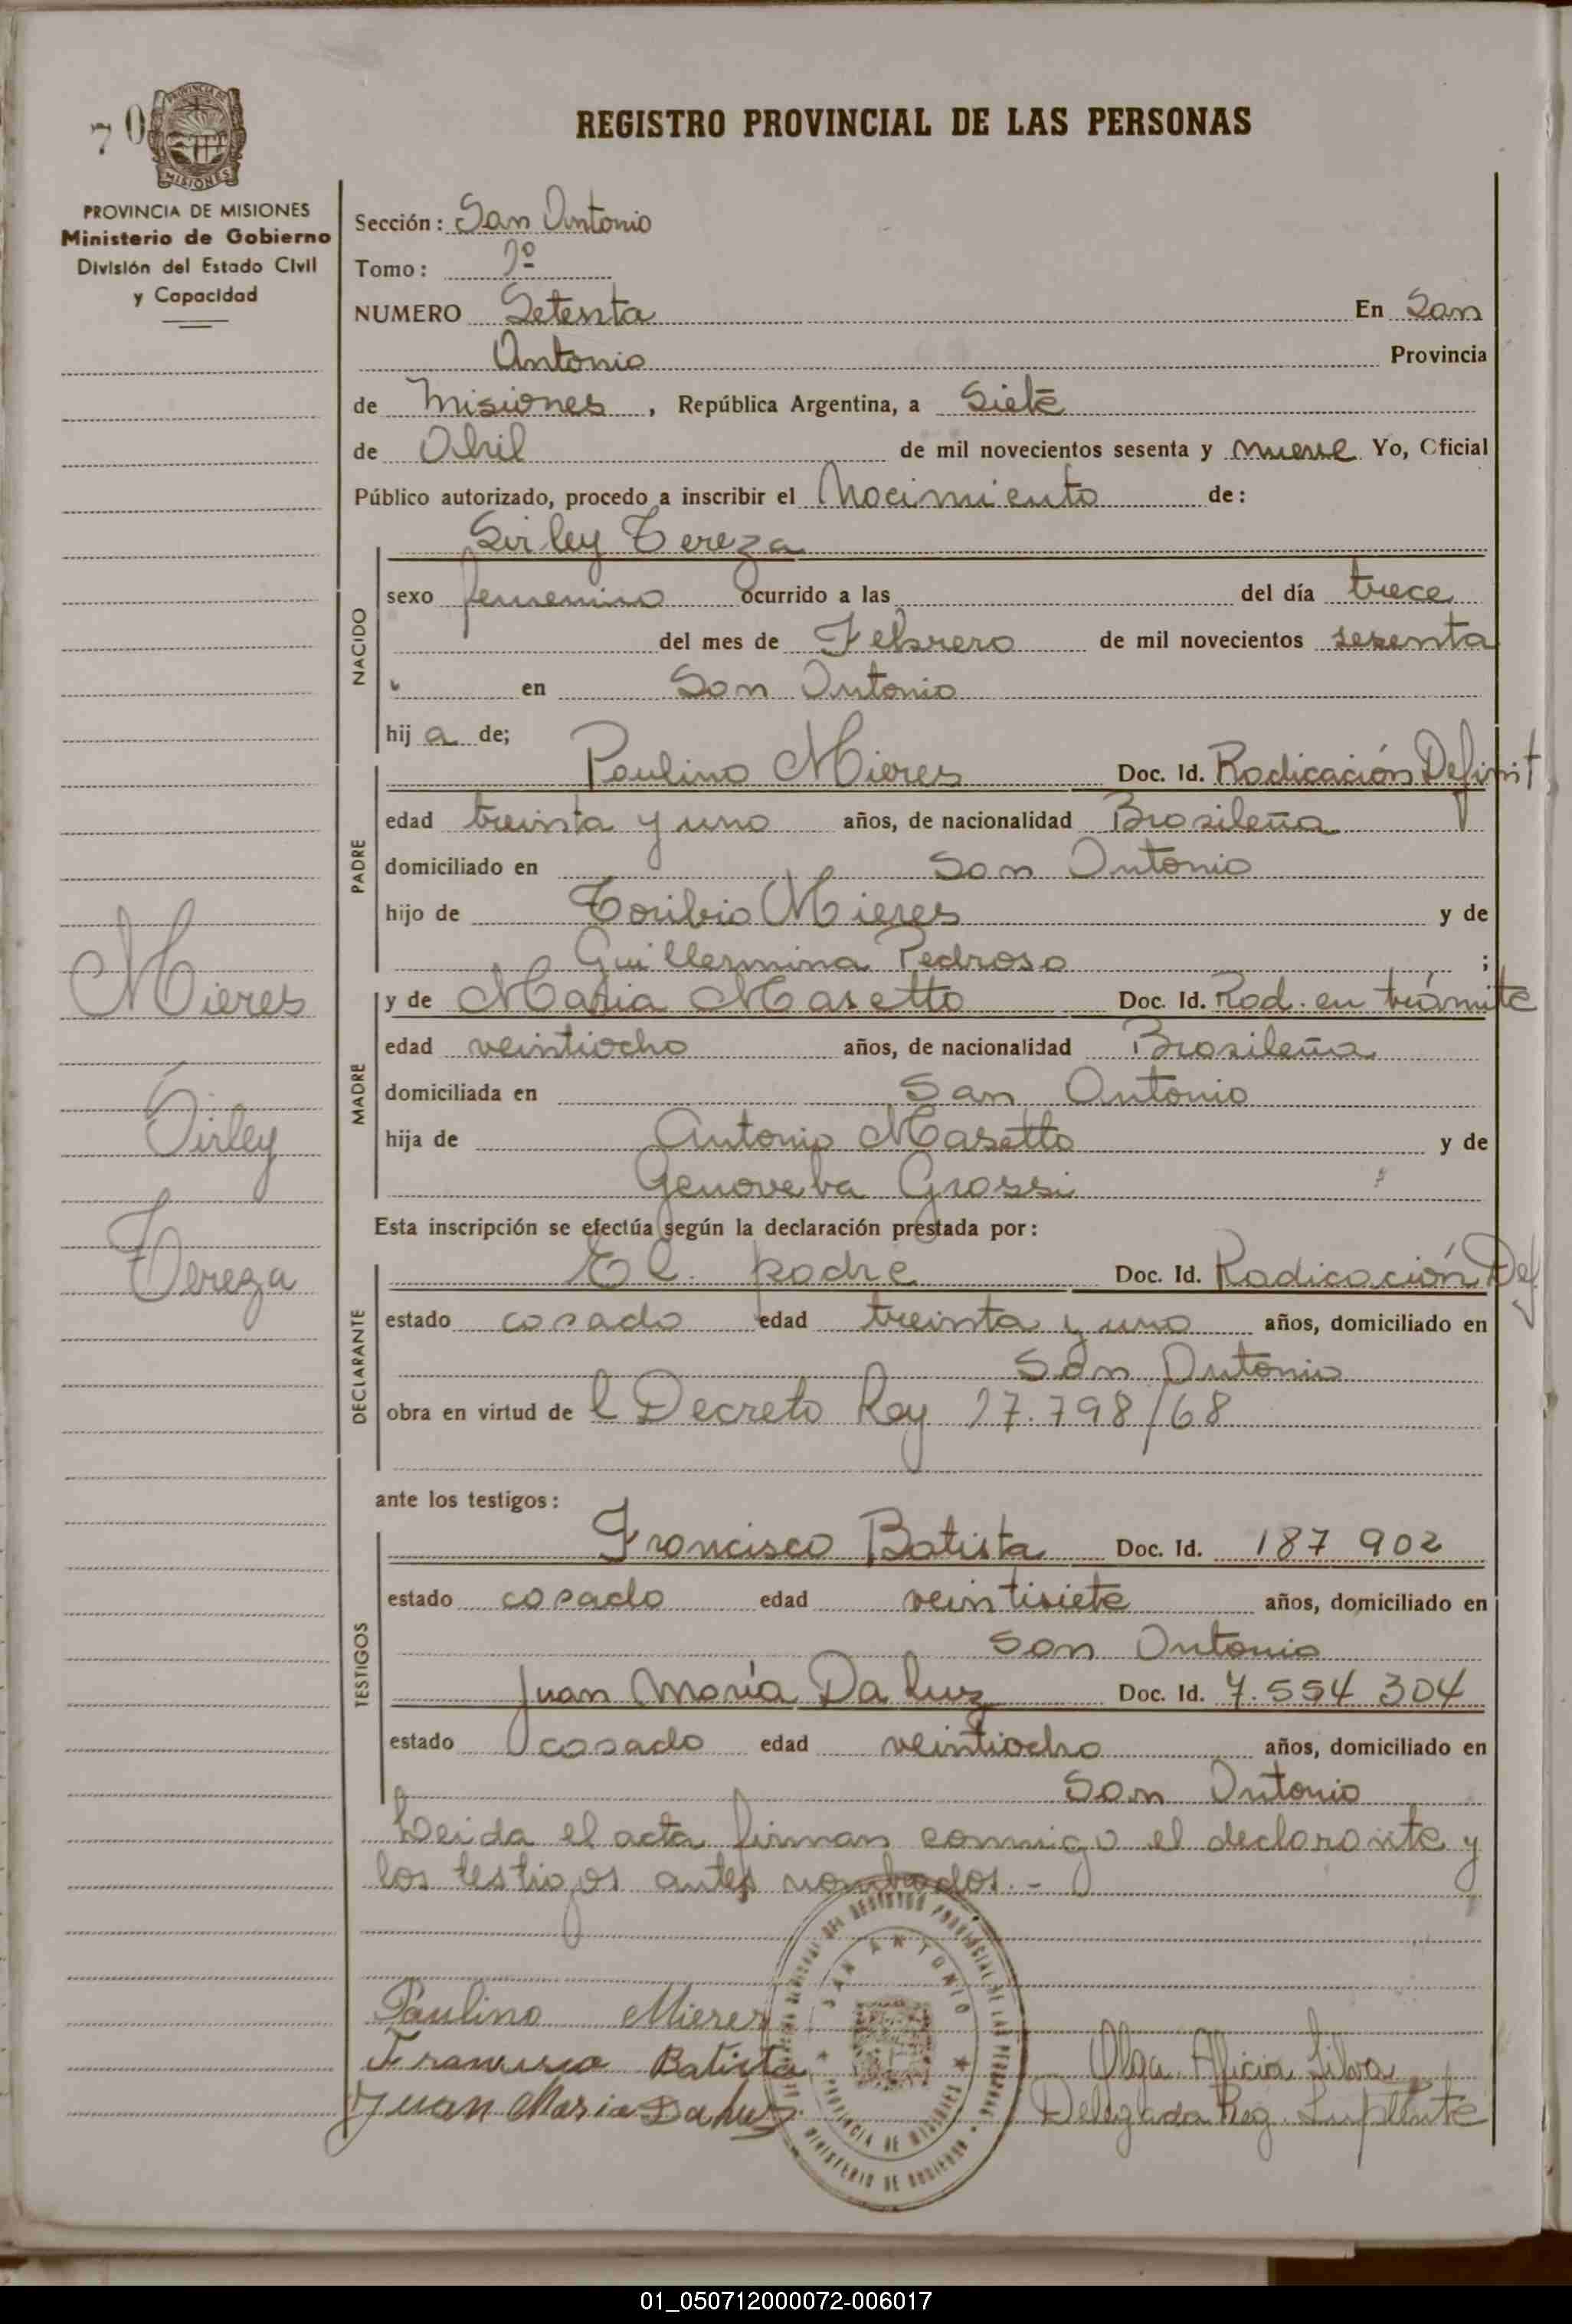 70
PROVINCIA DE
MISIONES
PROVINCIA DE MISIONES
Ministerio de Gobierno
División del Estado Civil
y Capacidad
REGISTRO PROVINCIAL DE LAS PERSONAS
Sección: San Antonio
Tomo: 1º
NUMERO Setenta En San
Antonio Provincia
de Misiones, República Argentina, a Siete
de Abril de mil novecientos sesenta y nueve Yo, Oficial
Público autorizado, procedo a inscribir el Nacimiento de:
Sirley Tereza
NACIDO
sexo femenino ocurrido a las del día trece
del mes de Febrero de mil novecientos sesenta
en San Antonio
hij a de;
PADRE
Paulino Mieres Doc. Id. Radicación Definit
edad treinta y uno años, de nacionalidad Brasileña
domiciliado en San Antonio
hijo de Toribio Mieres y de
Guillermina Pedroso ;
MADRE
y de Maria Masetto Doc. Id. Rad. en trámite
edad veintiocho años, de nacionalidad Brasileña
domiciliada en San Antonio
hija de Antonio Masetto y de
Genoveba Grossi
Mieres
Sirley
Tereza
Esta inscripción se efectúa según la declaración prestada por:
DECLARANTE
El padre Doc. Id. Radicación Def
estado casado edad treinta y uno años, domiciliado en
San Antonio
obra en virtud de l Decreto Ley 17.798/68
ante los testigos:
TESTIGOS
Francisco Batista Doc. Id. 187 902
estado casado edad veintisiete años, domiciliado en
San Antonio
Juan María Da Luz Doc. Id. 7.554 304
estado casado edad veintiocho años, domiciliado en
San Antonio
Leida el acta firman conmigo el declarante y
los testigos antes nombrados.-
Paulino Mieres
Francisco Batista
Juan Maria Da Luz
SAN ANTONIO
PROVINCIA DE MISIONES
MINISTERIO DE GOBIERNO
Olga Alicia Silva
Delegada Reg. Suplente
01_050712000072-006017